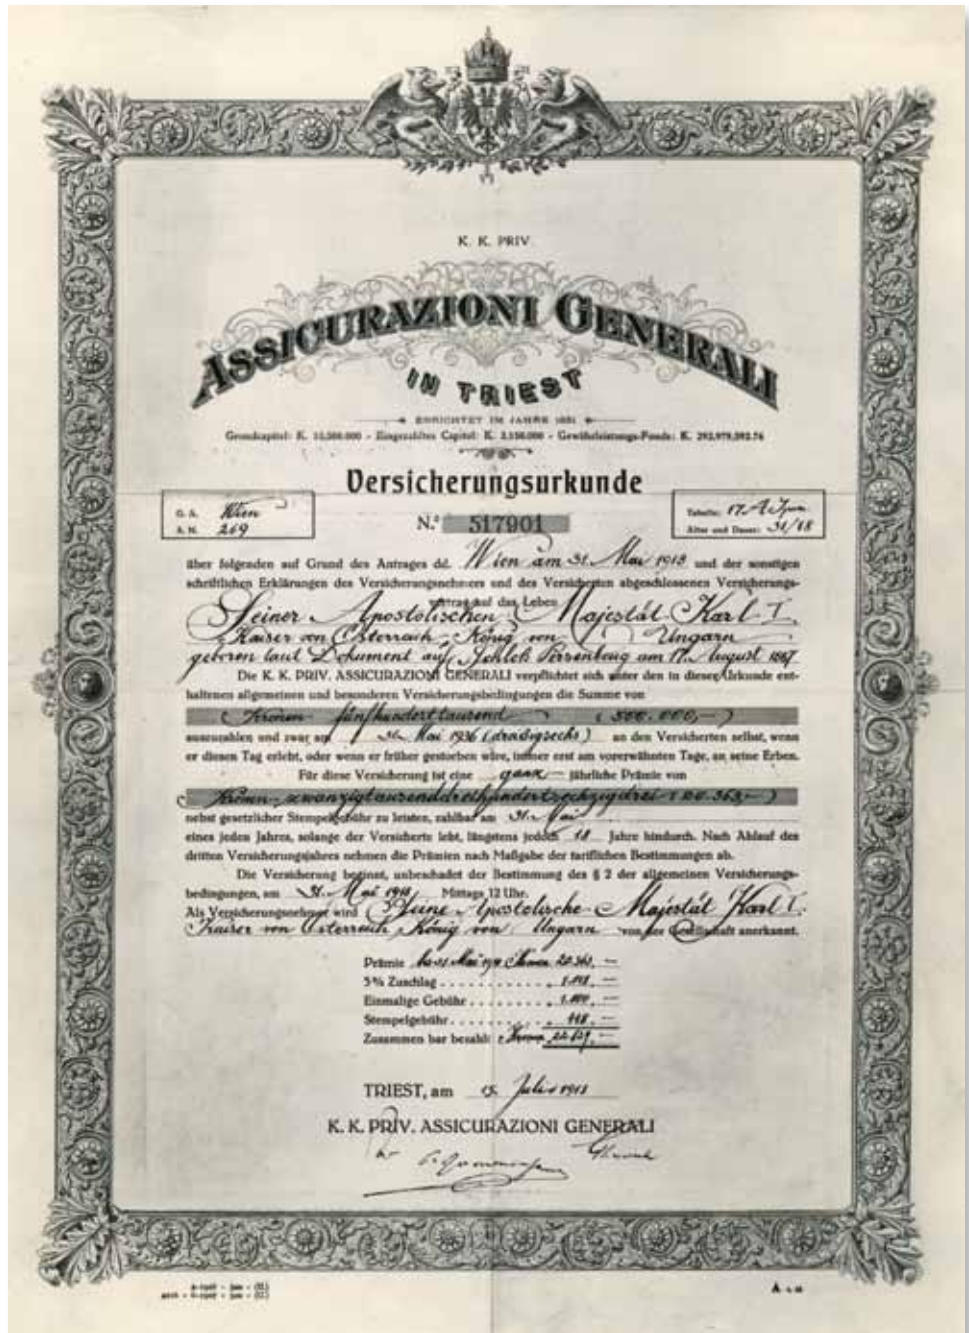 K. K. PRIV.
ASSICURAZIONI GENERALI
IN TRIEST
ERRICHTET IM JAHRE 1831
Grundkapital: K. - Eingezahltes Capital: K. 3.150.000 - Gewährleistungs-Fonds: K.
Versicherungsurkunde
G. A. Wien
A. N. 269
N.º 517901
Tabelle: 17.
Alter und Dauer: 31/18
über folgenden auf Grund des Antrages dd. Wien am 31. Mai 1918 und der sonstigen
schriftlichen Erklärungen des Versicherungsnehmers und des Versicherten abgeschlossenen Versicherungs-
vertrag auf das Leben
Seiner Apostolischen Majestät Karl I.
Kaiser von Österreich, König von Ungarn
geboren laut Dokument auf Schloß Persenbeug am 17. August 1887
Die K. K. PRIV. ASSICURAZIONI GENERALI verpflichtet sich unter den in dieser Urkunde ent-
haltenen allgemeinen und besonderen Versicherungsbedingungen die Summe von
Kronen fünfhunderttausend (500.000,-)
auszuzahlen und zwar am 31. Mai 1936 (dreißigsechs) an den Versicherten selbst, wenn
er diesen Tag erlebt, oder wenn er früher gestorben wäre, immer erst am vorerwähnten Tage, an seine Erben.
Für diese Versicherung ist eine ganz- jährliche Prämie von
Kronen zwanzigtausenddreihundertsechzigdrei (20.363,-)
nebst gesetzlicher Stempelgebühr zu leisten, zahlbar am 31. Mai
eines jeden Jahres, solange der Versicherte lebt, längstens jedoch 18 Jahre hindurch. Nach Ablauf des
dritten Versicherungsjahres nehmen die Prämien nach Maßgabe der tariflichen Bestimmungen ab.
Die Versicherung beginnt, unbeschadet der Bestimmung des § 2 der allgemeinen Versicherungs-
bedingungen, am 31. Mai 1918 Mittags 12 Uhr.
Als Versicherungsnehmer wird Seine Apostolische Majestät Karl I.
Kaiser von Österreich, König von Ungarn von der Gesellschaft anerkannt.
Prämie Mai Kronen 20.363,-
5% Zuschlag
Einmalige Gebühr
Stempelgebühr
Zusammen bar bezahlt: Kronen
TRIEST, am Julio 1918
K. K. PRIV. ASSICURAZIONI GENERALI